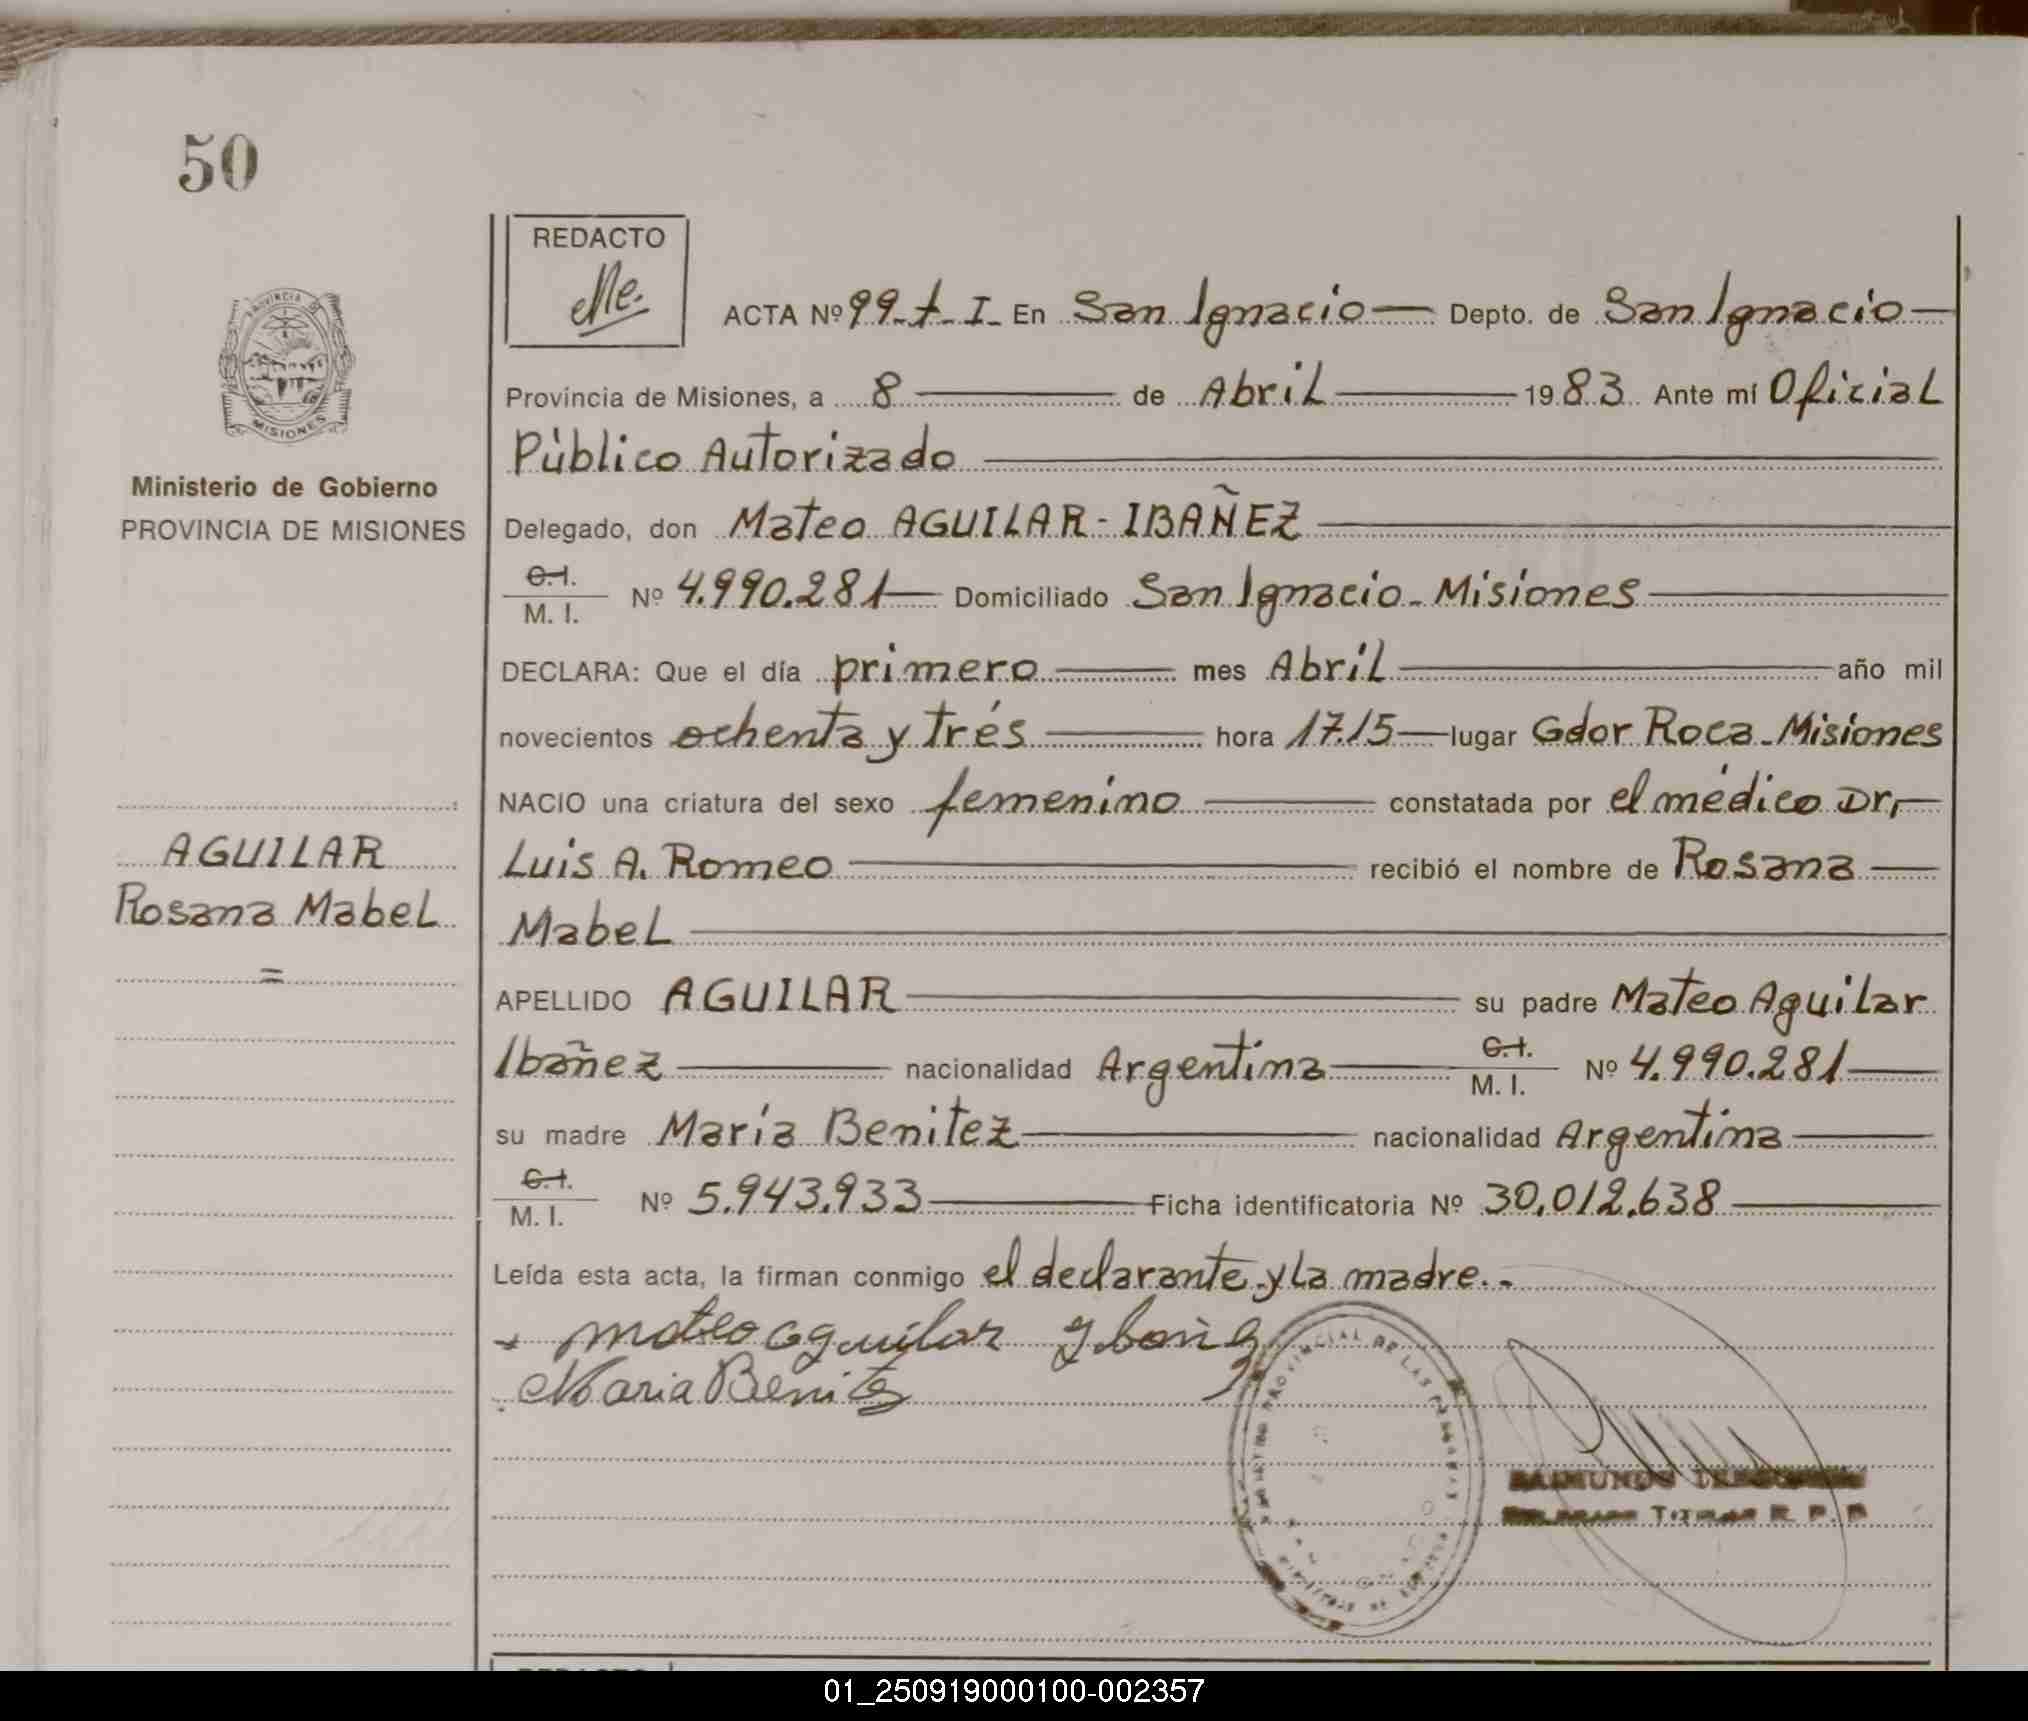 50
REDACTO
PROVINCIA DE
MISIONES
Ministerio de Gobierno
PROVINCIA DE MISIONES
AGUILAR
Rosana Mabel
=
ACTA Nº 99-t-I- En San Ignacio — Depto. de San Ignacio —
Provincia de Misiones, a 8 — de Abril — 1983 Ante mí Oficial
Pùblico Autorizado —
Delegado, don Mateo AGUILAR - IBAÑEZ —
C.I.
M. I. Nº 4.990.281 — Domiciliado San Ignacio - Misiones —
DECLARA: Que el día primero — mes Abril — año mil
novecientos ochenta y trés — hora 17.15 — lugar Gdor Roca - Misiones
NACIO una criatura del sexo femenino — constatada por el médico Dr, —
Luis A. Romeo — recibió el nombre de Rosana —
Mabel —
APELLIDO AGUILAR — su padre Mateo Aguilar
Ibañez — nacionalidad Argentina — C.I.
M. I. Nº 4.990.281 —
su madre María Benitez — nacionalidad Argentina —
C.I.
M. I. Nº 5.943.933 — Ficha identificatoria Nº 30.012.638 —
Leída esta acta, la firman conmigo el declarante y la madre. -
mateo aguilar
Maria Benitez
PROVINCIAL DE LAS PERSONAS
RAIMUNDO
TITULAR R. P. P
REDACTO
01_250919000100-002357